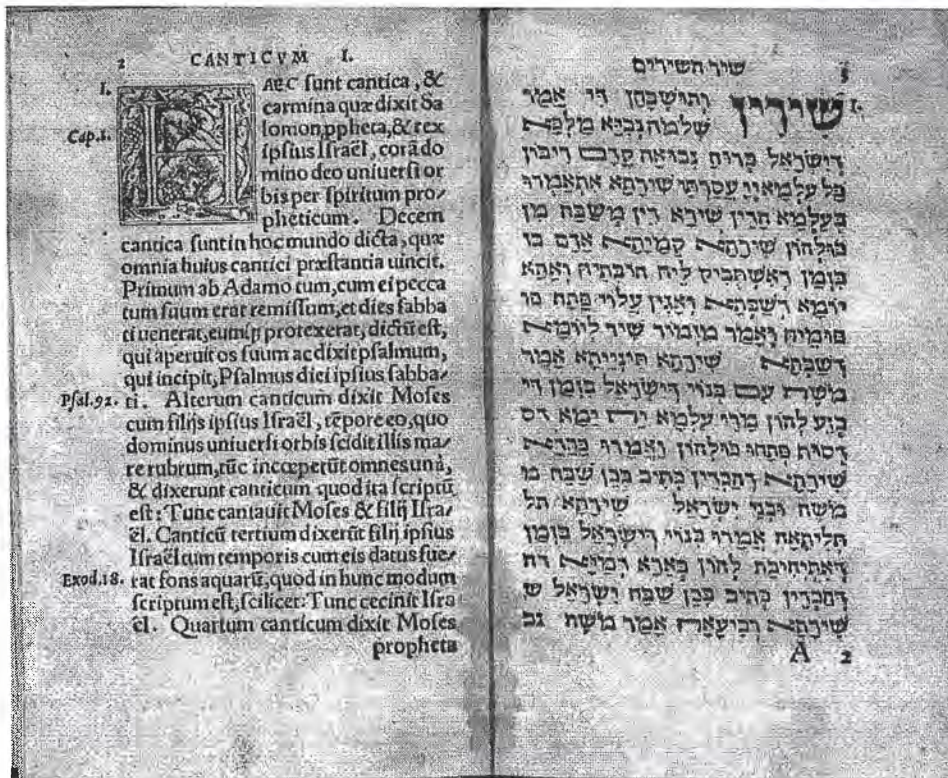 2 CANTICVM I.
I.
AEC sunt cantica, &
Cap. I. carmina quæ dixit Sa
lomon ꝓpheta, & rex
ipsius Israël, corā do
mino deo uniuersi or
bis per spiritum pro-
pheticum. Decem
cantica sunt in hoc mundo dicta, quæ
omnia huius cantici præstantia uincit.
Primum ab Adamo tum, cum ei pecca
tum suum erat remissum, et dies sabba
ti uenerat, eumꝗ protexerat, dictū est,
qui aperuit os suum ac dixit psalmum,
qui incipit, Psalmus diei ipsius sabba-
Psal.92. ti. Alterum canticum dixit Moses
cum filijs ipsius Israël, tēpore eo, quo
dominus uniuersi orbis scidit illis ma-
re rubrum, tūc incœperūt omnes unà,
& dixerunt canticum quod ita scriptū
est: Tunc cantauit Moses & filij Isra-
ël. Canticū tertium dixerūt filij ipsius
Israël tum temporis cum eis datus fue-
Exod.18. rat fons aquarū, quod in hunc modum
scriptum est, scilicet: Tunc cecinit Isra
ël. Quartum canticum dixit Moses
propheta
שיר השירים
I. שירין ותושבחן די אמר
שלמה נביא מלכא
דישראל ברוח נבואה קדם ריבון
כל עלמא יי עסרתי שירתא אתאמרו
בעלמא הדין שירא דין משבח מן
כולהון שירתא קמיתא אדם בו
בזמן דאשתביק ליה חובתיה ואתא
יומא דשבתא ואגין עלוי פתח פו
פומיה ואמר מזמור שיר ליומא
דשבתא שירתא תינייתא אמר
משה עם בנוי דישראל בזמן די
בזע להון מרי עלמא ית ימא דס
דסוף פתחו כולהון ואמרו כחדא
שירתא דהכדין כתיב בכן שבח מו
משה ובני ישראל שירתא תל
תליתאה אמרו בנוי דישראל בזמן
דאתיהיבת להון בארא דמיא דה
דהכדין כתיב בכן שבח ישראל ש
שירתא רביעאה אמר משה נב
A 2